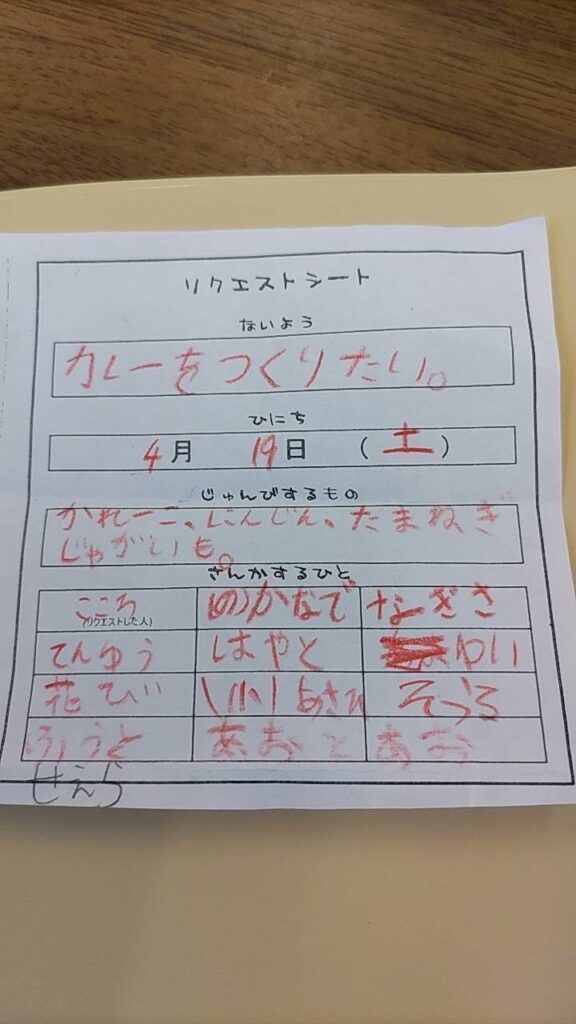 リクエストシート
ないよう
カレーをつくりたい。
ひにち
4月 19日 (土)
じゅんびするもの
かれーこ、にんじん、たまねぎ
じゃがいも。
さんかするひと
こころ かなで なぎさ
(リクエストした人)
てんゆう はやと ゆい
花び (小) あさひ そうろ
ふうと あおと
せえら